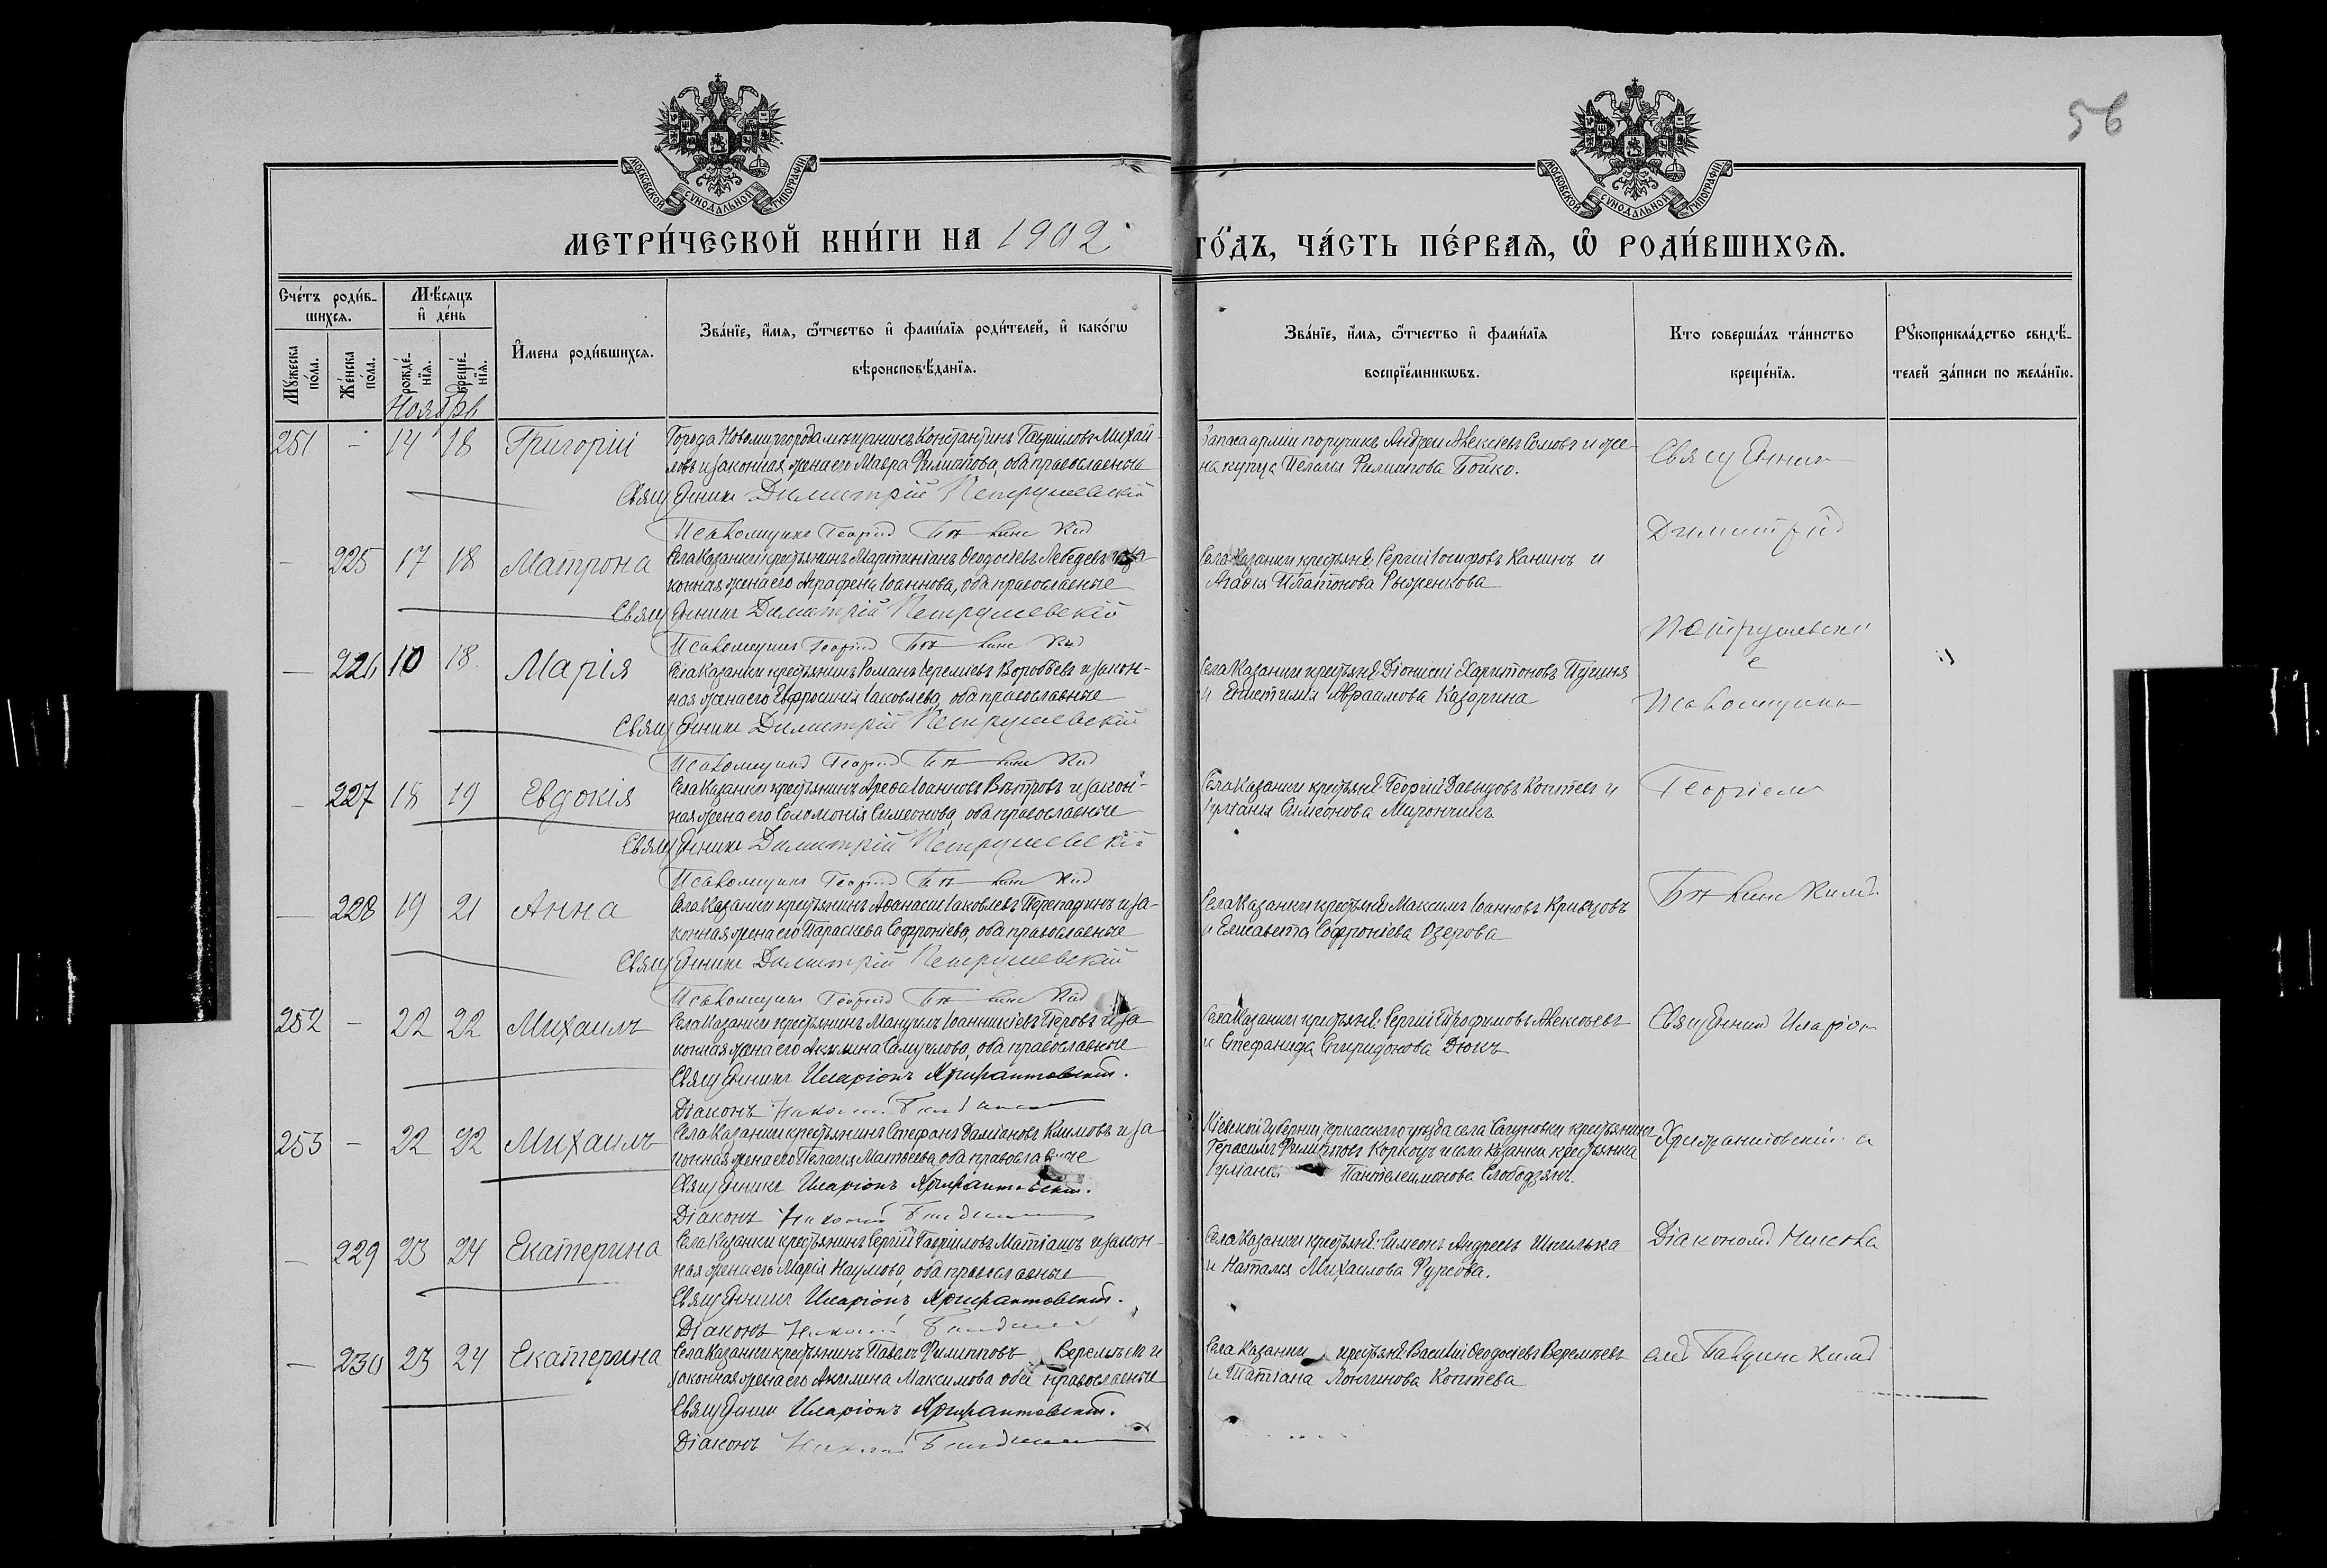 56
МОСКОВСКОЙ СѴНОДАЛЬНОЙ ТИПОГРАФІИ
МОСКОВСКОЙ СѴНОДАЛЬНОЙ ТИПОГРАФІИ
МЕТРИ́ЧЕСКОЙ КНИ́ГИ НА 1902 ГО́ДЪ, ЧА́СТЬ ПЕ́РВАѦ, Ѡ҆ РОДИ́ВШИХСѦ.
Сче́тъ роди́в-
шихсѧ.
Мꙋ́жеска по́ла.
Же́нска по́ла.
Мѣ́сѧцъ
и҆ де́нь
рожде́-нїѧ.
креще́-нїѧ.
И҆мена роди́вшихсѧ.
Зва́нїе, и҆́мѧ, ѻ҆́тчество и҆ фами́лїѧ роди́телей, и҆ како́гѡ
вѣроисповѣ́данїѧ.
Зва́нїе, и҆́мѧ, ѻ҆́тчество и҆ фами́лїѧ
воспрїе́мникѡвъ.
Кто соверша́лъ та́инство
креще́нїѧ.
Рꙋкоприкла́дство свидѣ́-
телей за́писи по жела́нїю.
Ноябрь
251 - 14 18 Григорій
Города Новомиргорода мѣщанинъ Константинъ Гавріиловъ Михай-
ловъ и законная жена его Мавра Филиппова, оба православные
Священникъ Димитрій Петрушевскій
Псаломщикъ Георгій
Запаса арміи поручикъ Андрей Алексѣевъ Сомовъ и же-
на купца Пелагія Филиппова Бойко.
Священник
Димитрій
- 225 17 18 Матрона
Села Казанки крестьянинъ Мартиніанъ Ѳеодосіевъ Лебедевъ и за-
конная жена его Агафена Іоаннова, оба православные
Священникъ Димитрій Петрушевскій
Псаломщикъ Георгій
Села Казанки крестьяне: Сергій Іосифовъ Канинъ и
Агаѳія Платонова Рыженкова
Петрушевскі
- 226 10 18. Марія
Села Казанки крестьянинъ Романъ Іереміевъ Воробьевъ и закон-
ная жена его Евфросинія Іаковлева, оба православные
Священникъ Димитрій Петрушевскій
Псаломщикъ Георгій
Села Казанки крестьяне: Діонисій Харитоновъ Пучиня
и Епистимія Авраамова Казарина
с
Псаломщико
- 227 18 19 Евдокія
Села Казанки крестьянинъ Ареѳа Іоанновъ Вѣтровъ и закон-
ная жена его Соломонія Симеонова, оба православные
Священникъ Димитрій Петрушевскій
Псаломщикъ Георгій
Села Казанки крестьяне: Георгій Давидовъ Коптевъ и
Іуліанія Симеонова Мирончикъ
Георгіем
- 228 19 21 Анна
Села Казанки крестьянинъ Аѳанасій Іаковлевъ Перепадинъ и за-
конная жена его Параскева Софроніева, оба православные
Священникъ Димитрій Петрушевскій
Псаломщикъ Георгій
Села Казанки крестьяне: Максимъ Іоанновъ Кривцовъ
и Елисавета Софроніева Озерова
252 - 22 22 Михаилъ
Села Казанки крестьянинъ Мануилъ Іоанникіевъ Перовъ и за-
конная жена его Акилина Самуилова, оба православные
Священникъ Иларіонъ Хрисантовскій.
Діаконъ Николай
Села Казанки крестьяне: Сергій Трофимовъ Алексѣевъ
и Стефанида Спиридонова Дюкъ
Священник Иларіон
253 - 22 22 Михаилъ
Села Казанки крестьянинъ Стефанъ Даміановъ Климовъ и за-
конная жена его Пелагія Матѳеева, оба православные
Священникъ Иларіонъ Хрисантовскій.
Діаконъ Николай
Кіевской губерніи Черкасскаго уѣзда села Сагуновки крестьянинъ
Герасимъ Филипповъ Коркоцъ и села Казанки крестьянка
Іуліанія Пантелеимонова Слободзянъ.
Хрисантовскій и
- 229 23 24 Екатерина
Села Казанки крестьянинъ Сергій Гавріиловъ Матіашъ и закон-
ная жена его Марія Наумова, оба православные
Священникъ Иларіонъ Хрисантовскій.
Діаконъ Николай
Села Казанки крестьяне: Симеонъ Андреевъ Шпилька
и Наталія Михаилова Фурсова.
Діакономъ Никола
- 230 23 24 Екатерина
Села Казанки крестьянинъ Павелъ Филипповъ и
законная жена его Акилина Максимова, оба православные
Священникъ Иларіонъ Хрисантовскій.
Діаконъ Николай
Села Казанки крестьяне: Василій Ѳеодосіевъ Веремѣевъ
и Татіана Лонгинова Коптева